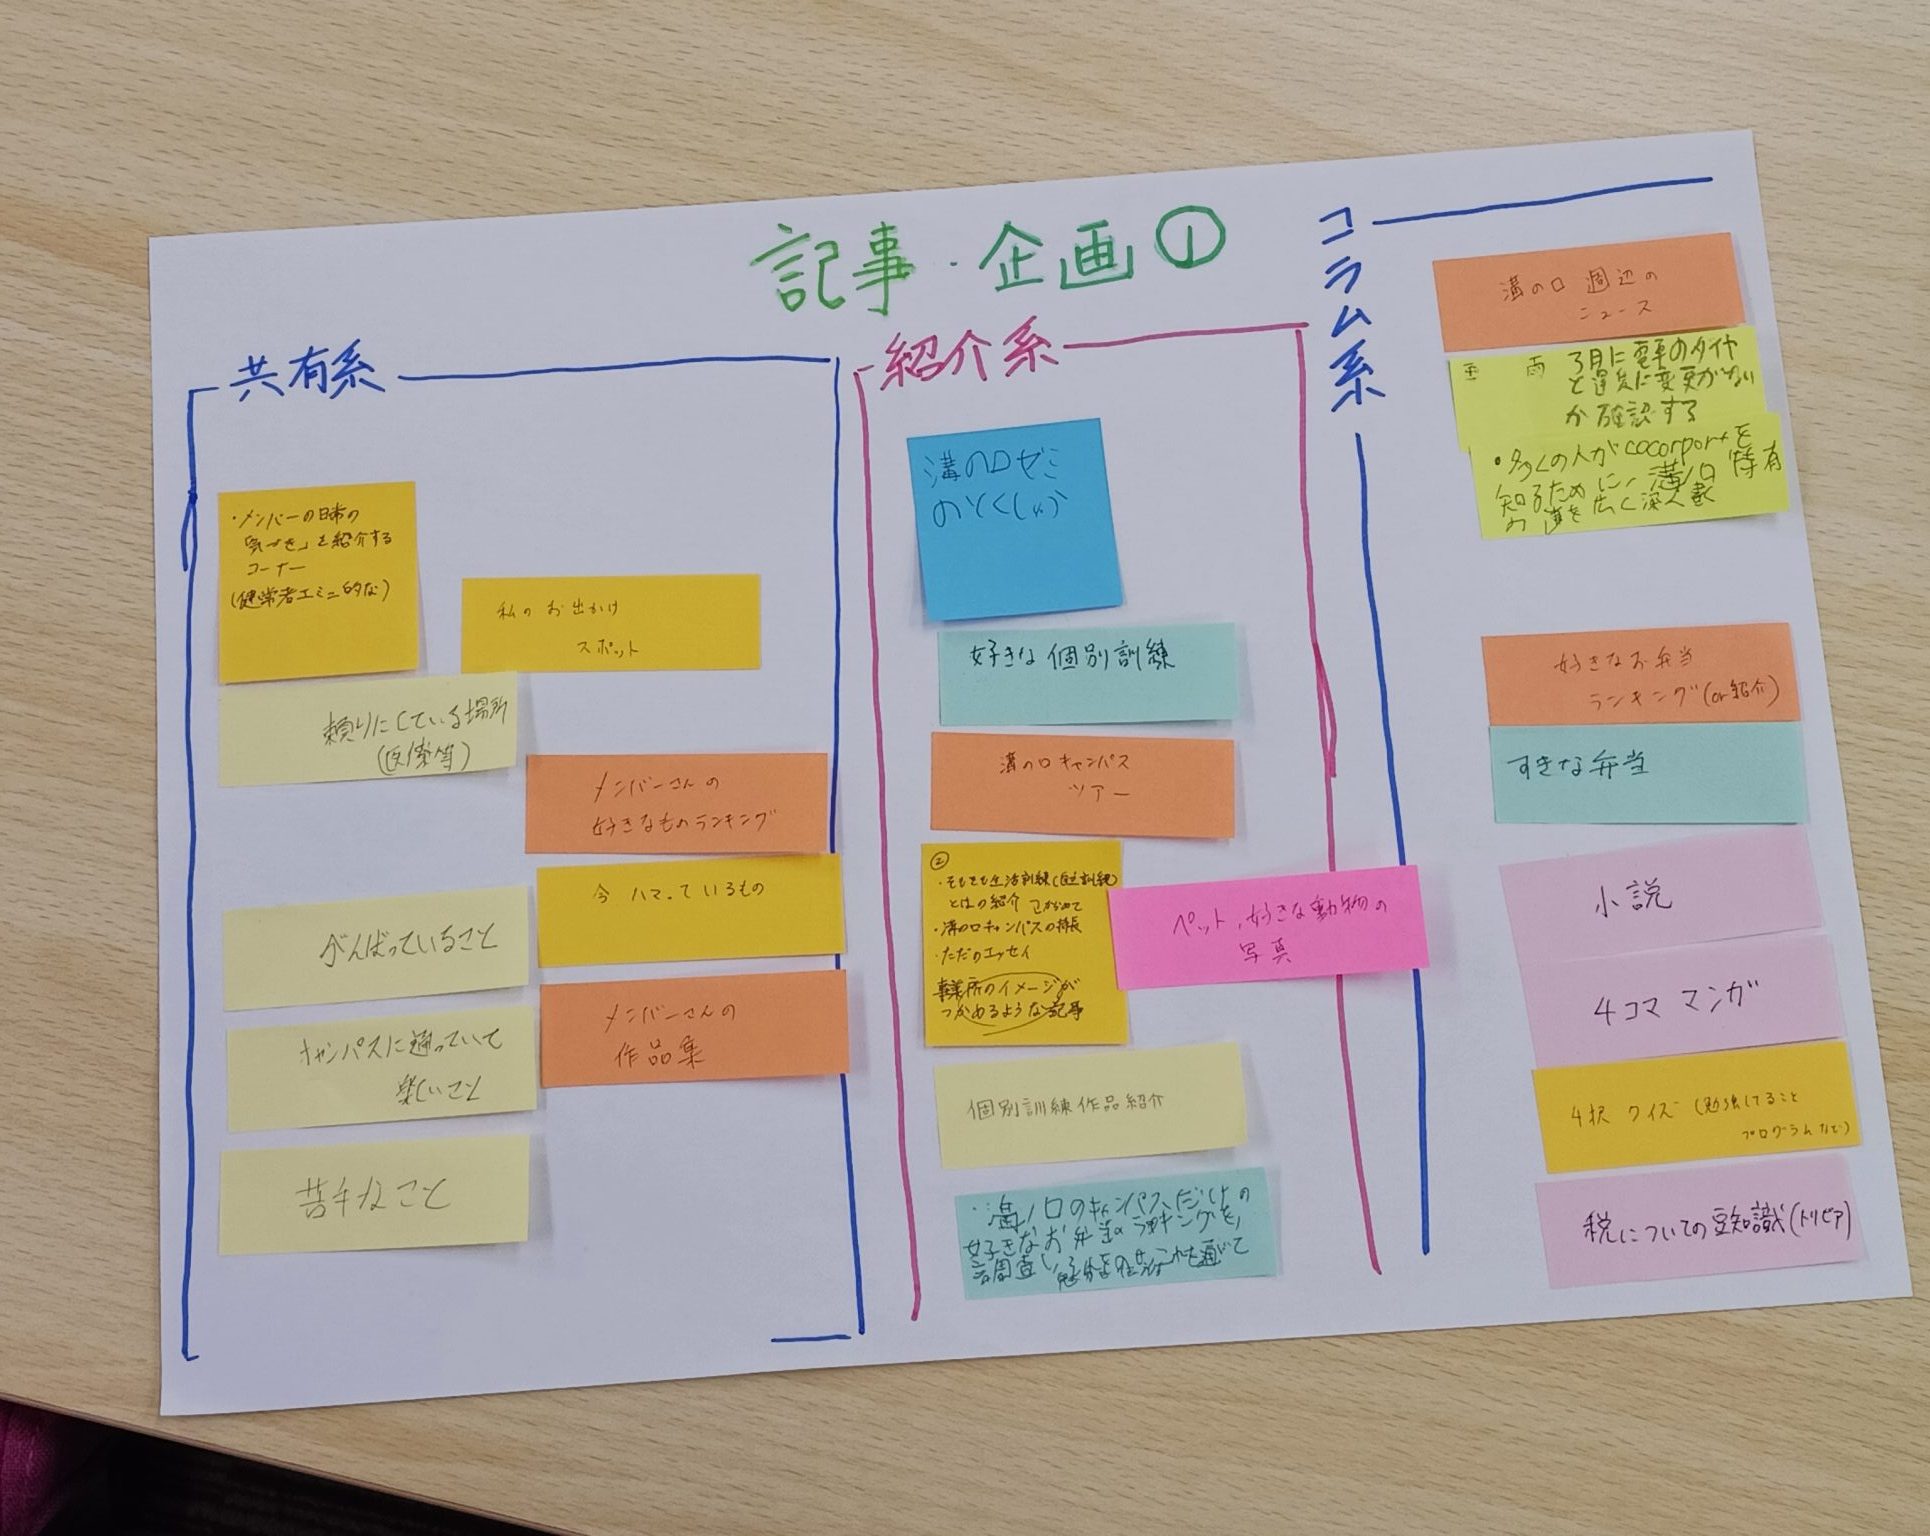 記事・企画①
共有系
・メンバーの日常の
「気づき」を紹介する
コーナー
(健常者エミュ的な)
私のお出かけ
スポット
頼りにしている場所
(医療等)
メンバーさんの
好きなものランキング
今ハマっているもの
がんばっていること
メンバーさんの
作品集
キャンパスに通っていて
楽しいこと
苦手なこと
紹介系
溝の口ゼミ
のとくしゅう
好きな個別訓練
溝の口キャンパス
ツアー
②
・そもそも生活訓練(自立訓練)
とはの紹介
・溝の口キャンパスの特長
・ただのエッセイ
事業所のイメージが
つかめるような記事
ペット、好きな動物の
写真
個別訓練作品紹介
溝ノ口のキャンパスだけの
好きなお弁当のランキングを、
調査し
コラム系
溝の口周辺の
ニュース
3月に電車のダイヤ
と運賃に変更がないか
か確認する
・多くの人がcocorportを
知るために、溝ノ口特有
の を広く
好きなお弁当
ランキング(or紹介)
すきな弁当
小説
4コママンガ
4択クイズ(勉強してること
プログラムなど)
税についての豆知識(トリビア)